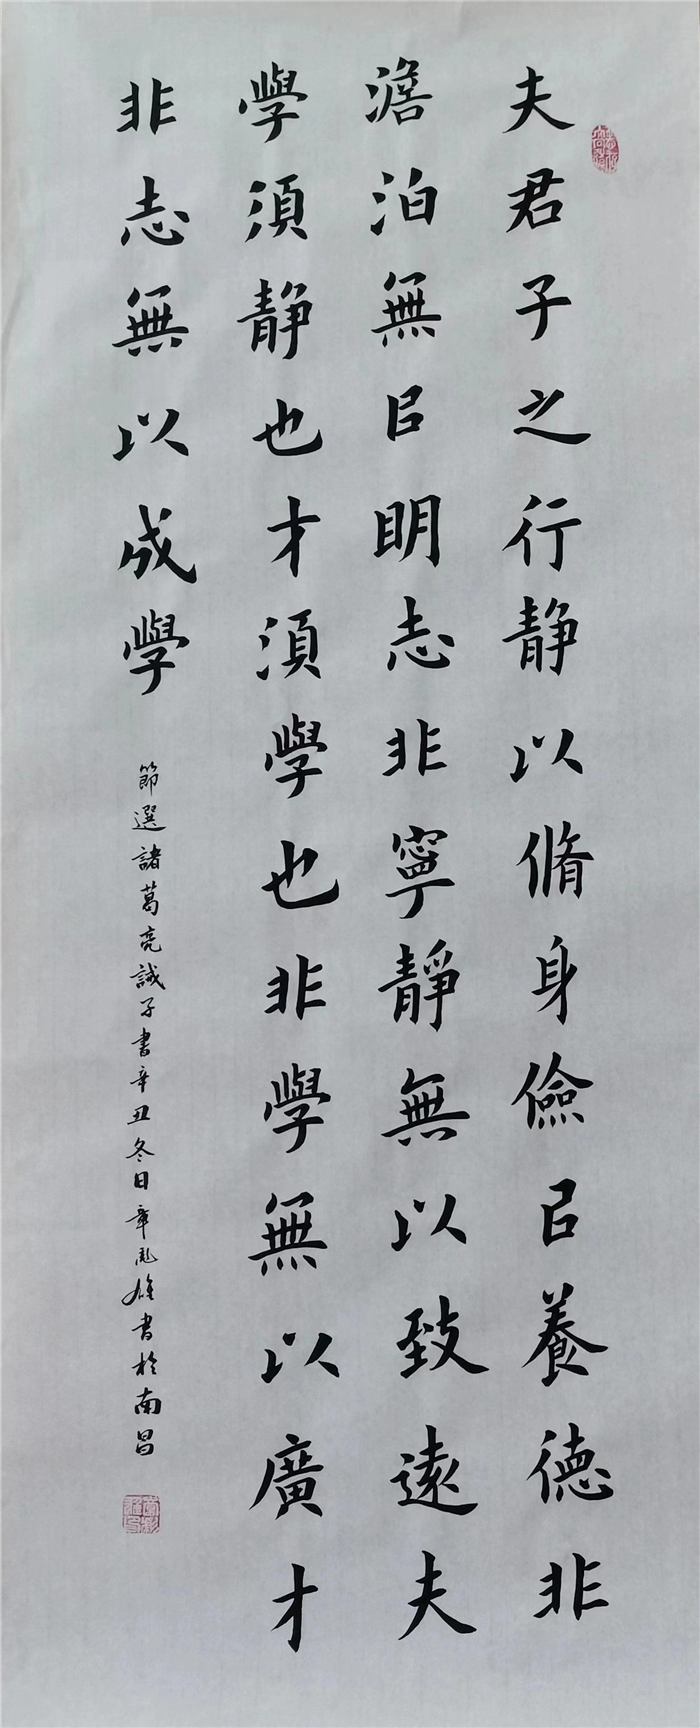 夫君子之行静以脩身儉㠯養德非
澹泊無㠯明志非寧靜無以致遠夫
學須静也才須學也非學無以廣才
非志無以成學
節選諸葛亮誡子書辛丑冬日章彪雄書於南昌